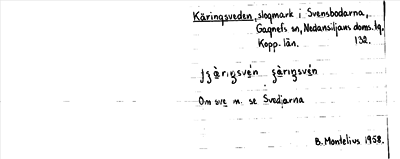 Käringsveden, slogmark i Svensbodarna,
Gagnefs sn, Nedansiljans doms. tg.
Kopp. län. 132.
Om sve m. se Svedjarna
B. Montelius 1958.